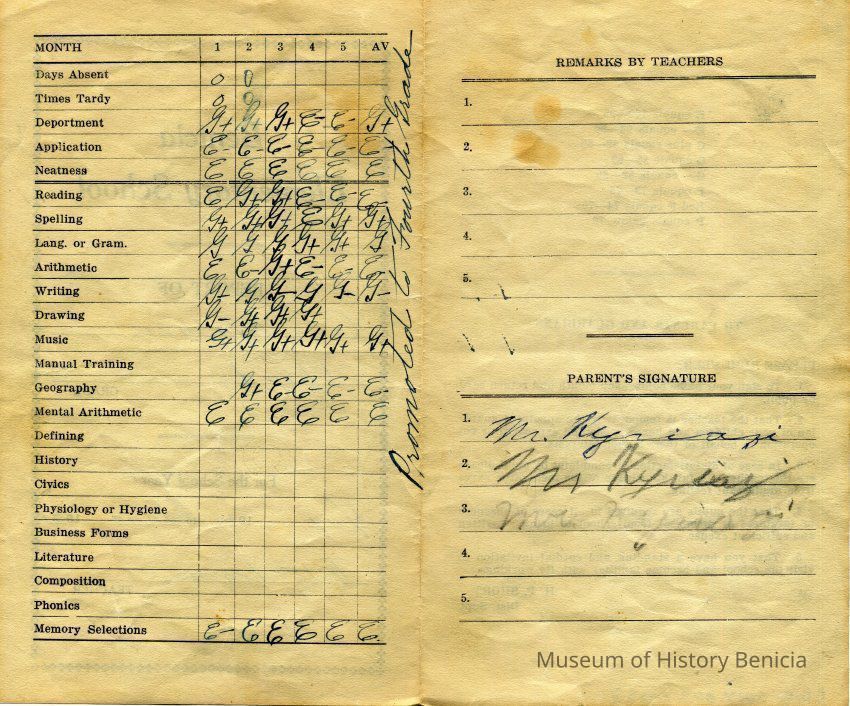 MONTH 1 2 3 4 5 AV
Days Absent 0 0
Times Tardy 0 0
Deportment G+ G+ G+ E- E- G+
Application E E- E- E E- E
Neatness E E E E E E
Reading E G+ G+ E E- E-
Spelling G+ G+ G+ E G+ G+
Lang. or Gram. G G G G+ G+ G
Arithmetic E E- G+ E- E- E-
Writing G+ G G- G G- G-
Drawing G- G+ G+ G+
Music G+ G+ G+ G+ G+ G+
Manual Training
Geography G+ E- E- E- E-
Mental Arithmetic E E E E E E
Defining
History
Civics
Physiology or Hygiene
Business Forms
Literature
Composition
Phonics
Memory Selections E- E E E E E
Promoted to Fourth Grade
REMARKS BY TEACHERS
1.
2.
3.
4.
5.
PARENT'S SIGNATURE
1. Mr. Kyriazi
2. Mr Kyriazi
3.
4.
5.
Museum of History Benicia